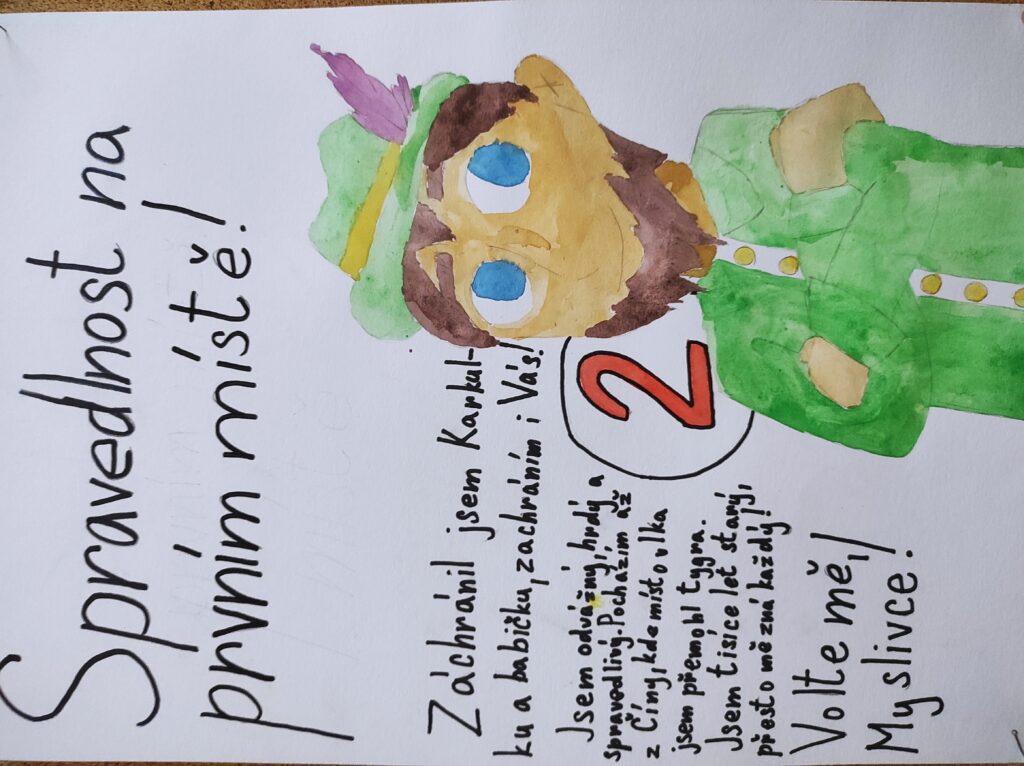 Spravedlnost na
prvním místě!
Záchránil jsem Karkul-
ku a babičku, zachráním i Vás!
Jsem odvážný, hrdý a
spravedlivý. Pocházím až
z Číny, kde místo vlka
jsem přemohl tygra.
Jsem tisíce let starý,
přesto mě zná každý!
Volte mě,
Myslivce!
2